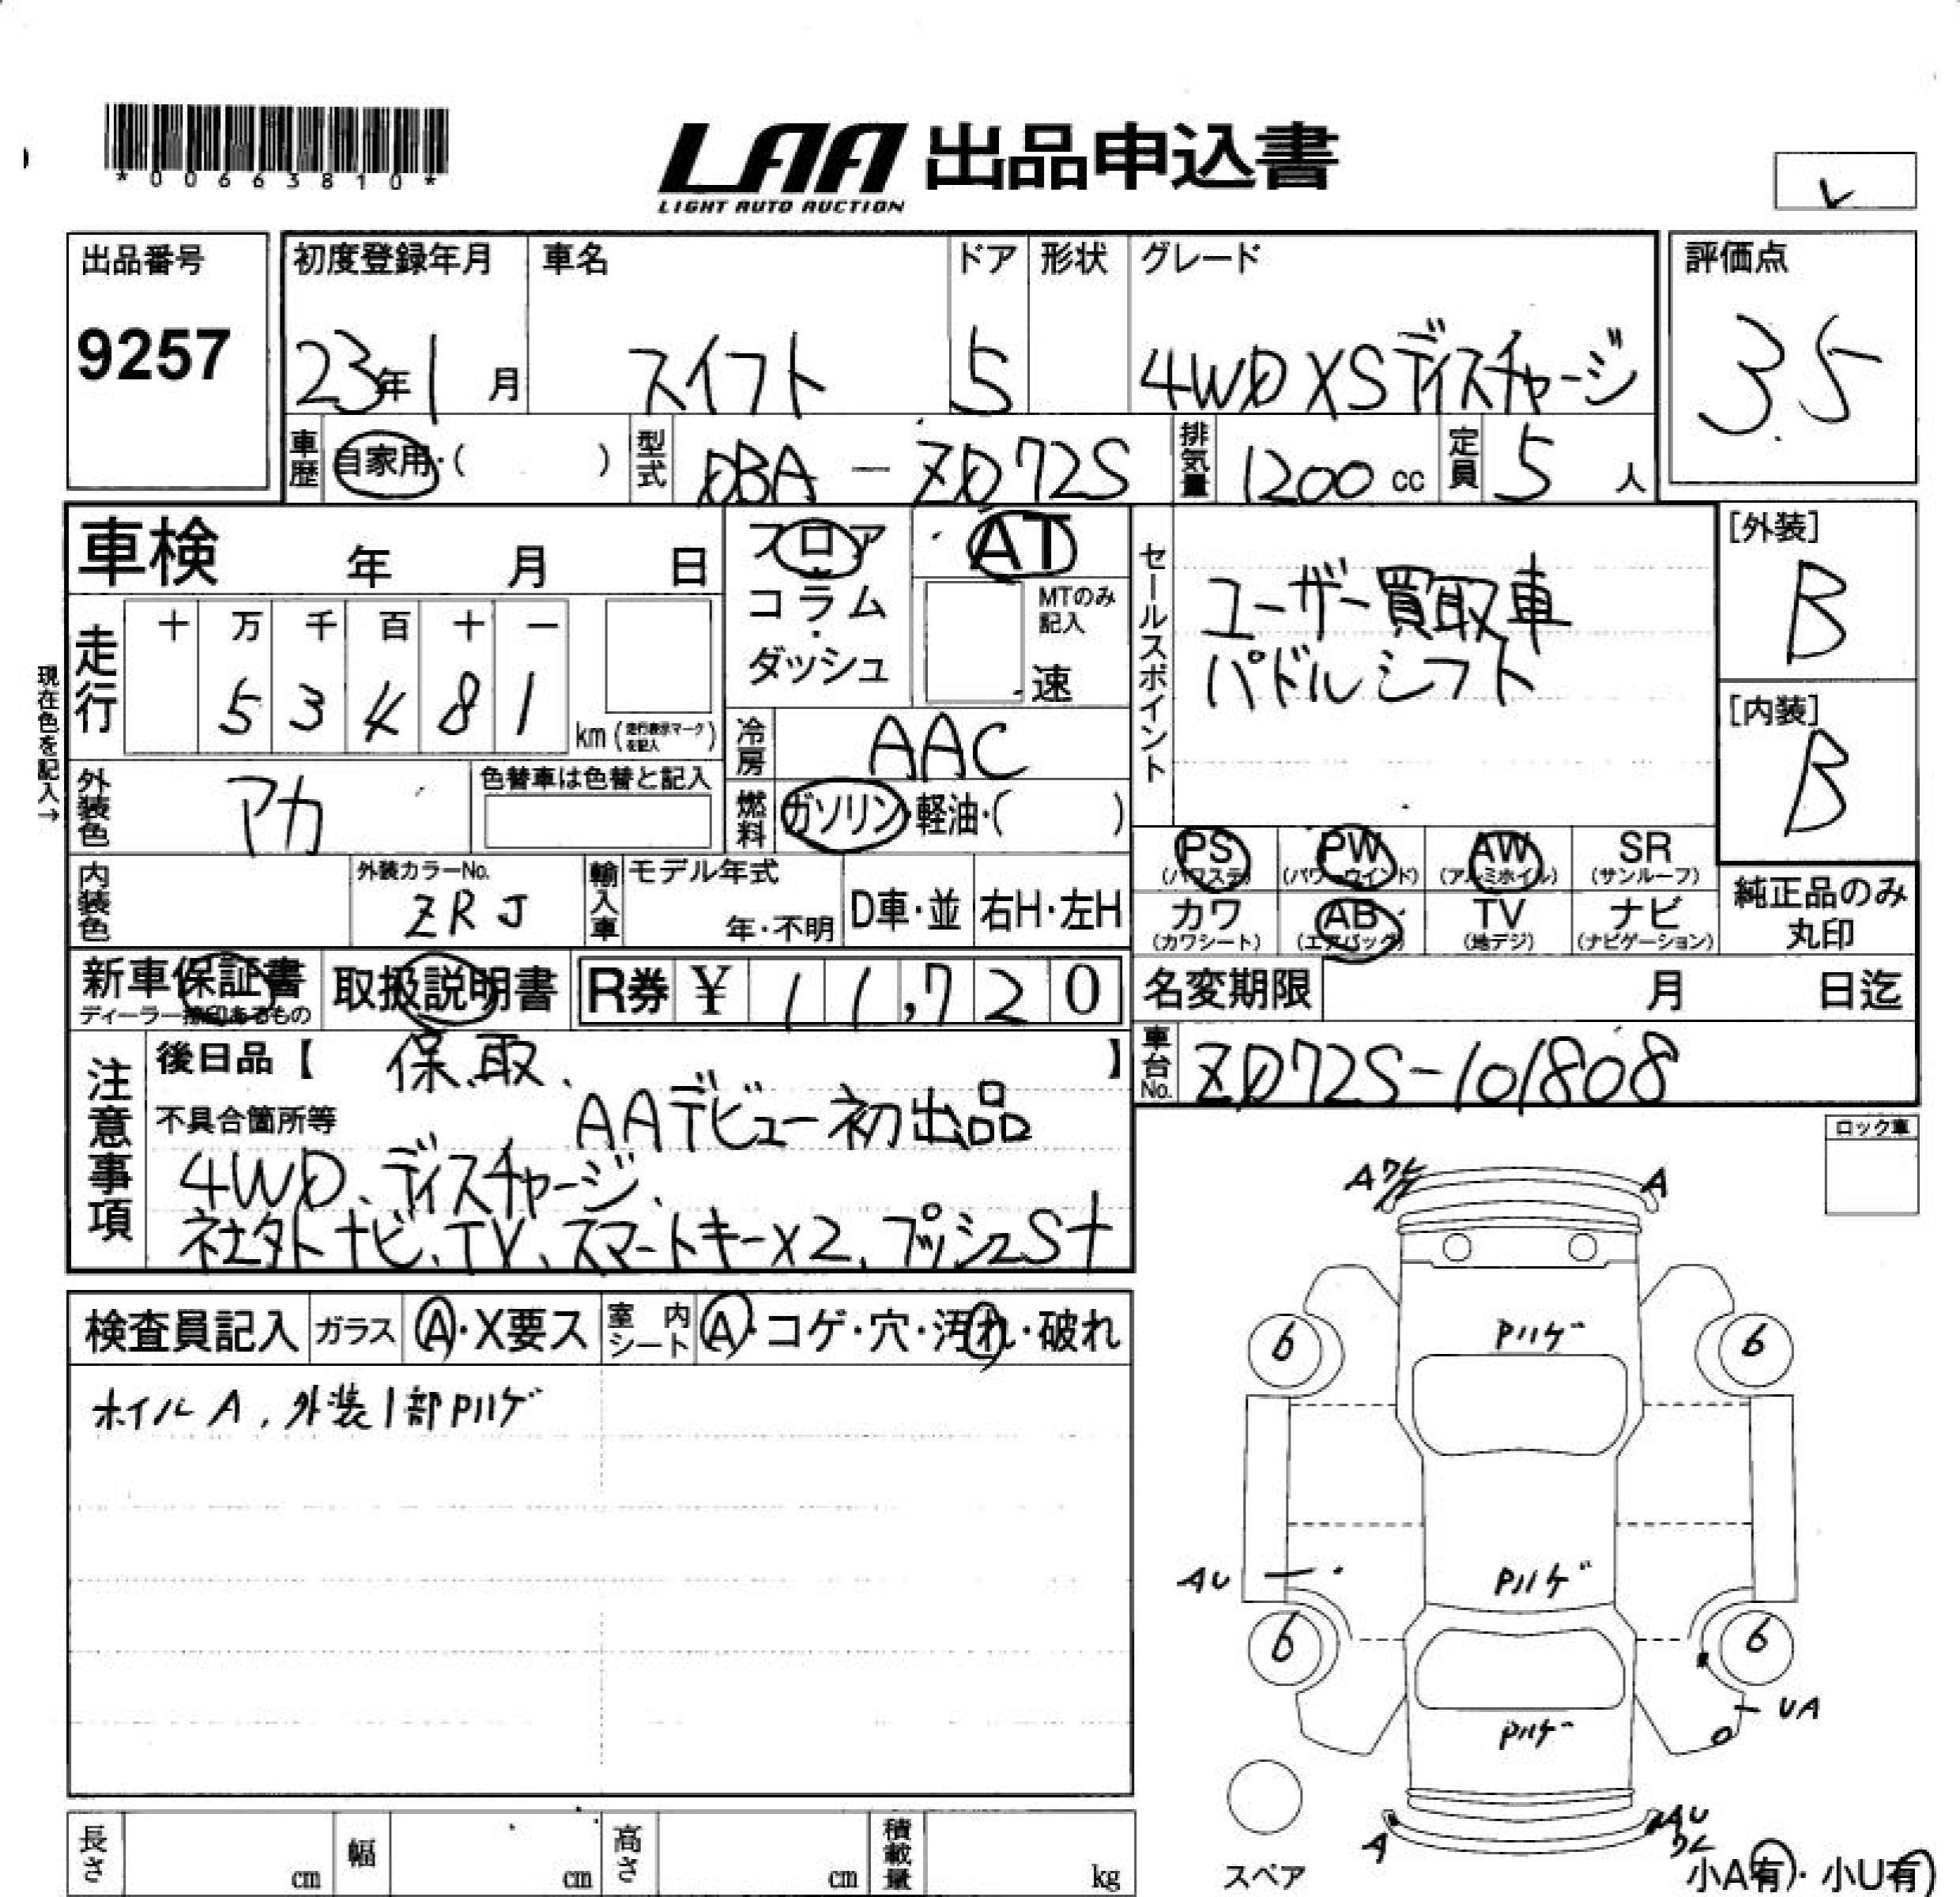 *00663810*
LAA 出品申込書
LIGHT AUTO AUCTION
レ
出品番号
9257
初度登録年月 車名 ドア 形状 グレード
23年1月 スイフト 5 4WD XSディスチャージ
評価点
3.5
車歴 自家用・( ) 型式 DBA-ZD72S 排気量 1200cc 定員 5人
車検 年 月 日
フロア
コラム
・
ダッシュ
AT
MTのみ
記入
速
セールスポイント
ユーザー買取車
パドルシフト
[外装]
B
[内装]
B
現在色を記入→
走行 十 万 千 百 十 一
5 3 4 8 1
km(走行表示マークを記入)
冷房 AAC
外装色 アカ 色替車は色替と記入
燃料 ガソリン・軽油・( )
PS(パワステ) PW(パワーウインド) AW(アルミホイル) SR(サンルーフ)
カワ(カワシート) AB(エアバッグ) TV(地デジ) ナビ(ナビゲーション)
純正品のみ
丸印
内装色 外装カラーNo. ZRJ 輸入車 モデル年式 年・不明 D車・並 右H・左H
新車保証書 取扱説明書 R券 ¥ 11,720
ディーラー捺印あるもの
名変期限 月 日迄
車台No. ZD72S-101808
注意事項
後日品【 保、取、 】
不具合箇所等 AAデビュー初出品
4WD、ディスチャージ、
社外ナビ、TV、スマートキーx2、プッシュSt
ロック車
検査員記入 ガラス A・X要ス 室内シート A・コゲ・穴・汚れ・破れ
ホイルA、外装1部Pハゲ
Aワレ A
Pハゲ
6 6
AU Pハゲ
6 6
UA
Pハゲ
A AU
ワレ
スペア
小A有・小U有
長さ cm 幅 cm 高さ cm 積載量 kg